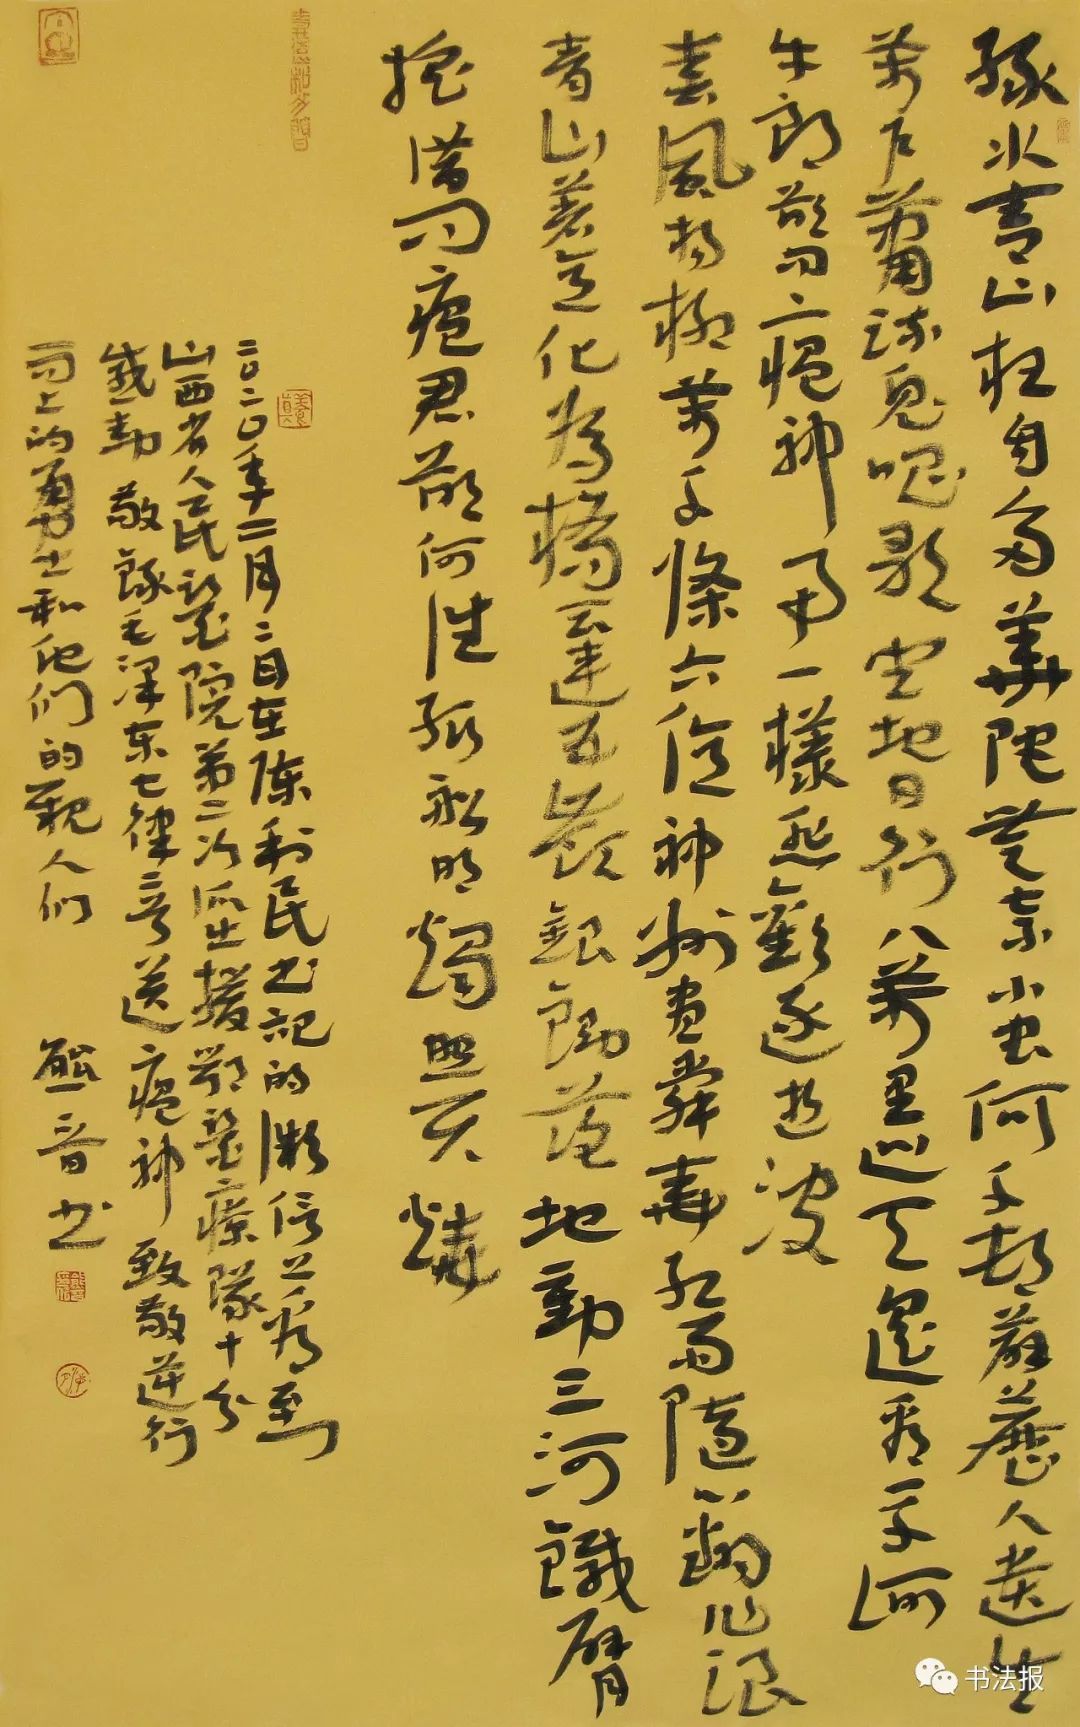 绿水青山枉自多华陀无奈小虫何千村薜苈人遗矢
万户萧疏鬼唱歌坐地日行八万里巡天遥看一千河
牛郎欲问瘟神事一样悲欢逐逝波
春风杨柳万千条六亿神州尽舜尧红雨随心翻作浪
青山着意化为桥天连五岭银锄落地动三河铁臂
摇借问瘟君欲何往纸船明烛照天烧
二〇二〇年二月二日在陈利民书记的微信上看到
山西省人民医院第二次派出援鄂医疗队十分
感动敬录毛泽东七律二首送瘟神致敬逆行
而上的勇士和他们的亲人们
熊音书
书法报